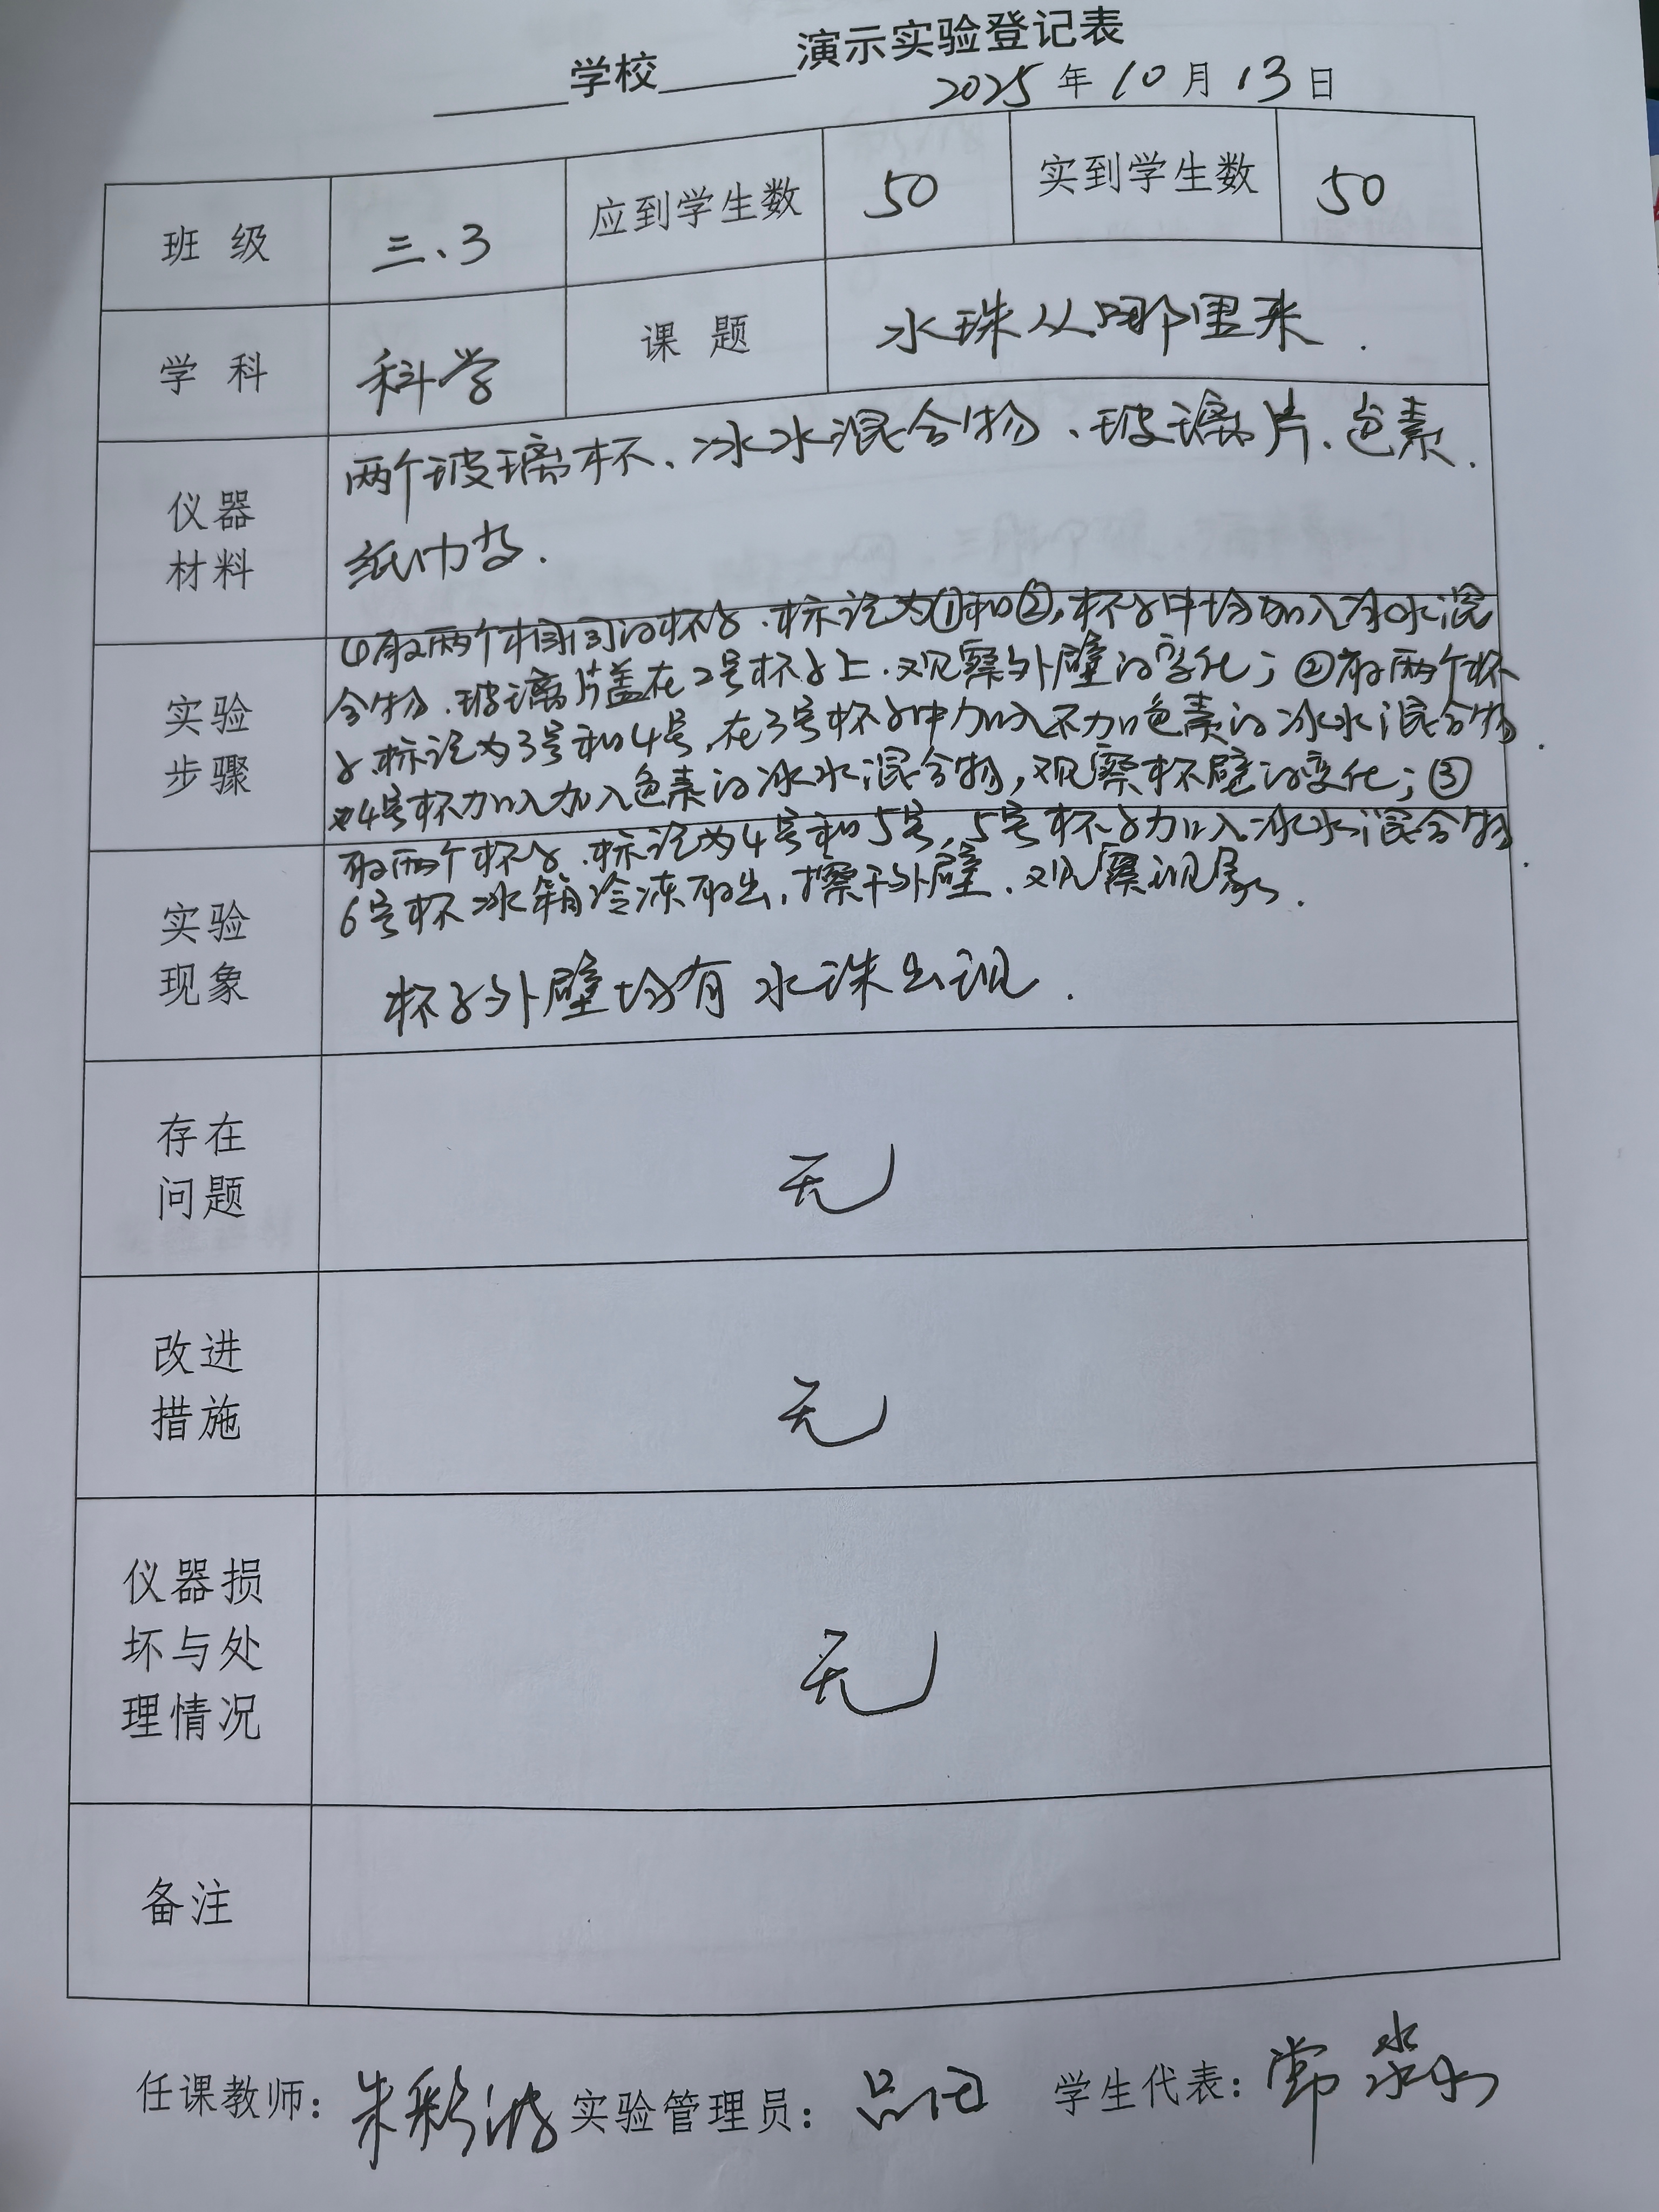 ______学校______演示实验登记表
2025年10月13日
班 级 三、3 应到学生数 50 实到学生数 50
学 科 科学 课 题 水珠从哪里来.
仪器材料
两个玻璃杯、冰水混合物、玻璃片、色素.
纸巾等.
实验步骤
①取两个相同的杯子.标记为①和②,杯子中均加入冰水混
合物.玻璃片盖在2号杯子上.观察外壁的变化;②取两个杯
子.标记为3号和4号,在3号杯子中加入不加色素的冰水混合物.
4号杯加入加入色素的冰水混合物,观察杯壁的变化;③
实验现象
取两个杯子.标记为4号和5号,5号杯子加入冰水混合物.
6号杯冰箱冷冻取出,擦干外壁.观察现象.
杯子外壁均有水珠出现.
存在问题 无
改进措施 无
仪器损坏与处理情况 无
备注
任课教师: 朱彩 实验管理员: 学生代表: 常淼